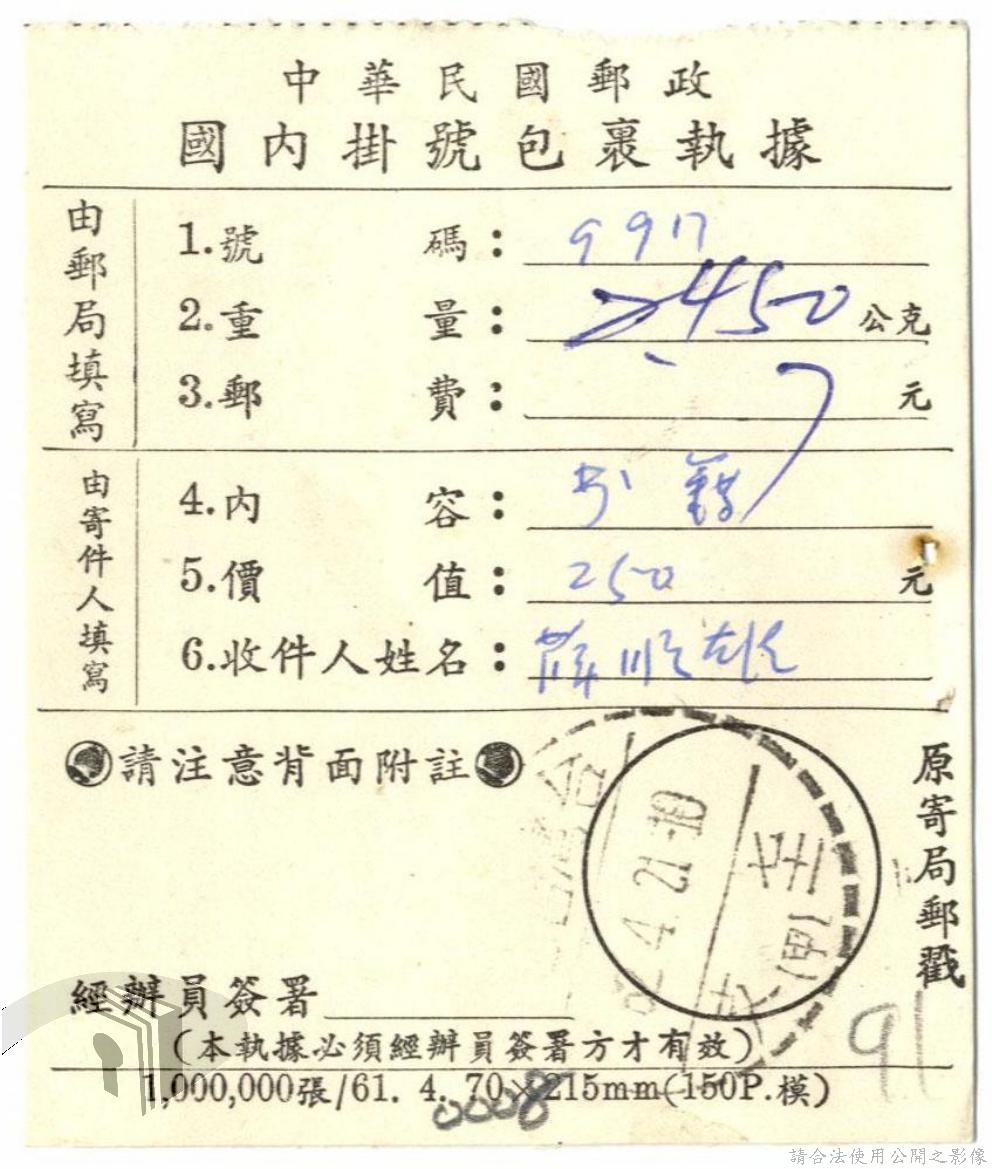 中華民國郵政
國內掛號包裹執據
由郵局填寫
1.號碼：9917
2.重量：2450公克
3.郵費：元
由寄件人填寫
4.內容：
5.價值：250元
6.收件人姓名：薛順雄
請注意背面附註
原寄局郵戳
4.21.10
(甲)
經辦員簽署
(本執據必須經辦員簽署方才有效)
1,000,000張/61. 4. 70×215mm(150P.模)
0008
91
請合法使用公開之影像